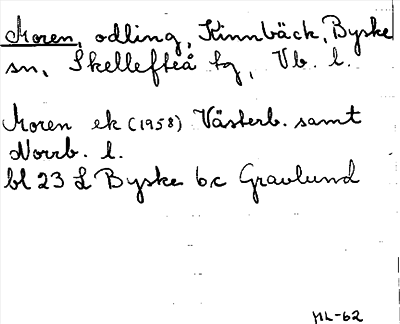 Moren, odling, Kinnbäck, Byske
sn, Skellefteå tg, Vb. l.
Moren ek (1958) Västerb. samt
Norrb. l.
bl 23 L Byske bc Gravlund
ML-62